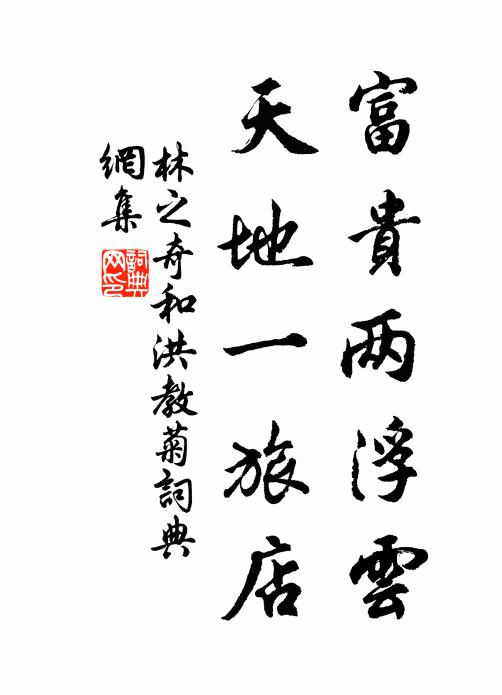 富貴兩浮雲
天地一旅店
林之奇和洪教菊詞典
網集
詞典
网印